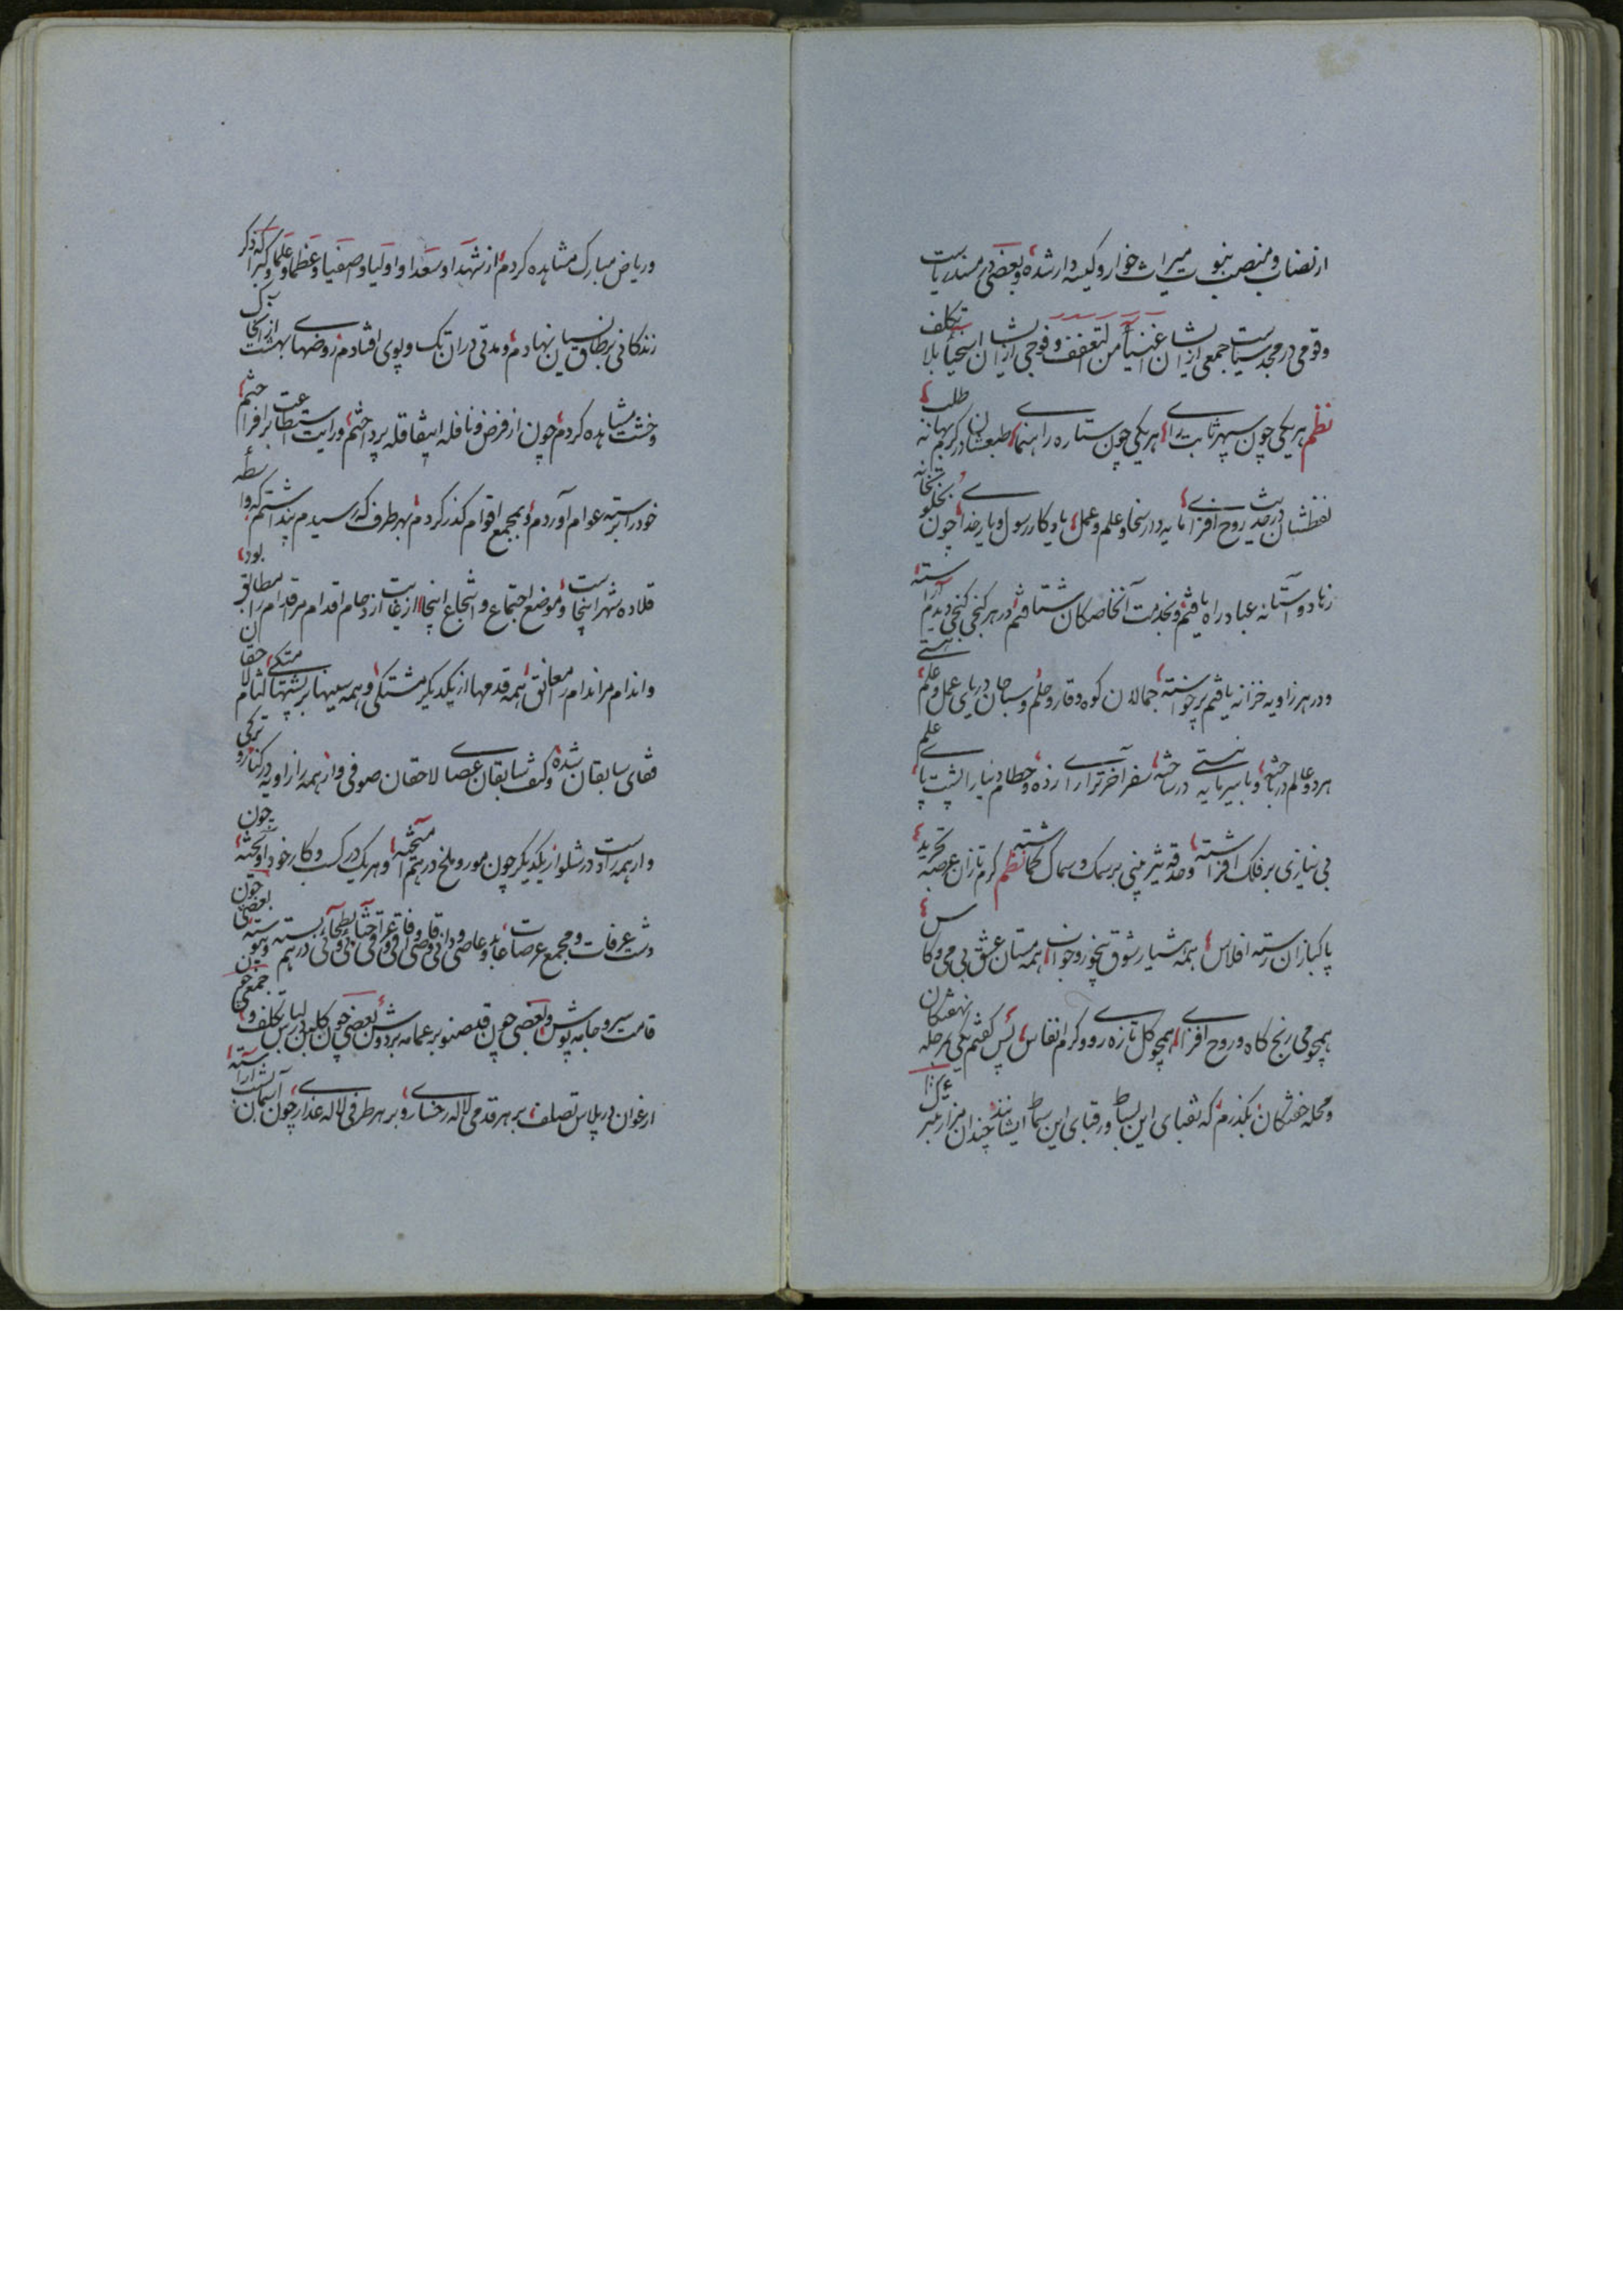 از نصاب و منصب نبوت میراث خوار و کیسه دار شده و بعضی در مسند ریاست
و قومی در مجد سیاست جمعی ازیشان اغنیآء من التعفف و فوجی ازیشان اسخیا بلا تکلف
نظم هر یکی چون سپهر ثابت رای هر یکی چون ستاره راهنمای طبعشان در کرم بهانه طلب
لفظشان در حدیث روح افزای مایه دار سخا و علم و عمل یادکار رسول و یار خدای چون بخلوتخانه
زهاد و آستانه عباد راه یافتم و بخدمت آن خاصکان شتافتم در هر کنجی کنجی دیدم آراسته
و در هر زاویه خزانه یافتم پر خواسته حمالان کوه وقار و حلم و سباحان دریای عمل و علم
هر دو عالم درباخته و با سیر مایه نیستی درساخته سفر آخرت را رای زده و حطام دنیا را پشت پای
بی نیازی بر فلک افراشته و حدقه تیز بینی بر سمک و سماک کماشته نظم کرم تازان عرصه تجرید
پاکبازان رسته افلاس همه هشیار شوق بیخور و خواب همه مستان عشق بی می و کاس
همچو می رنج کاه و روح افزای همچو کل تازه رو و کرم انفاس پس کفتم یکی بمرحله نهفتکان
و محله خفتکان بکذرم که نقبای این بساط و رقبای این سماط ایشانند چندان مزار متبرک
و ریاض مبارک مشاهده کردم از شهدا و سعدا و اولیا و اصفیا و عظما و علما و کبرا که ذکر
زندکانی بر طاق نسیان نهادم و مدتی در آن تک و پوی افتادم روضهای بهشت از آن خاک
و خشت مشاهده کردم چون از فرض و نافله این قافله پرداختم و رایت استطاعت برافراختم
خود را برسته عوام آوردم و بمجمع اقوام کذر کردم بهر طرف که رسیدم پنداشتم که واسطه
قلاده شهر اینجاست و موضع اجتماع و انتجاع اینجا از غایت ازدحام اقدام مر اقدام را مطابق بود
و اندام مر اندام را معانق همه قدمها از یکدیکر مشتکی و همه سینها بر پشتها متکی لثام
قفای سابقان شده و کتف سابقان عصای لاحقان صوفی وار همه را زاویه در کنار و ترکی
وار همه را در شلوار یکدیکر چون مور و ملخ درهم آمیخته و هر یک در کسب و کار خود آویخته چون
دشت عرفات و مجمع عرصات عابد و عاصی و دانی و قاصی
قامت سرو جامه پوش و بعضی چون قد صنوبر عمامه بر دوش بعضی چون کلبن در لباس تکلف و جمعی چون
ارغوان در پلاس تصلف بر هر قدمی لاله رخساری و بر هر طرفی لاله عذاری چون بآسمان آراسته